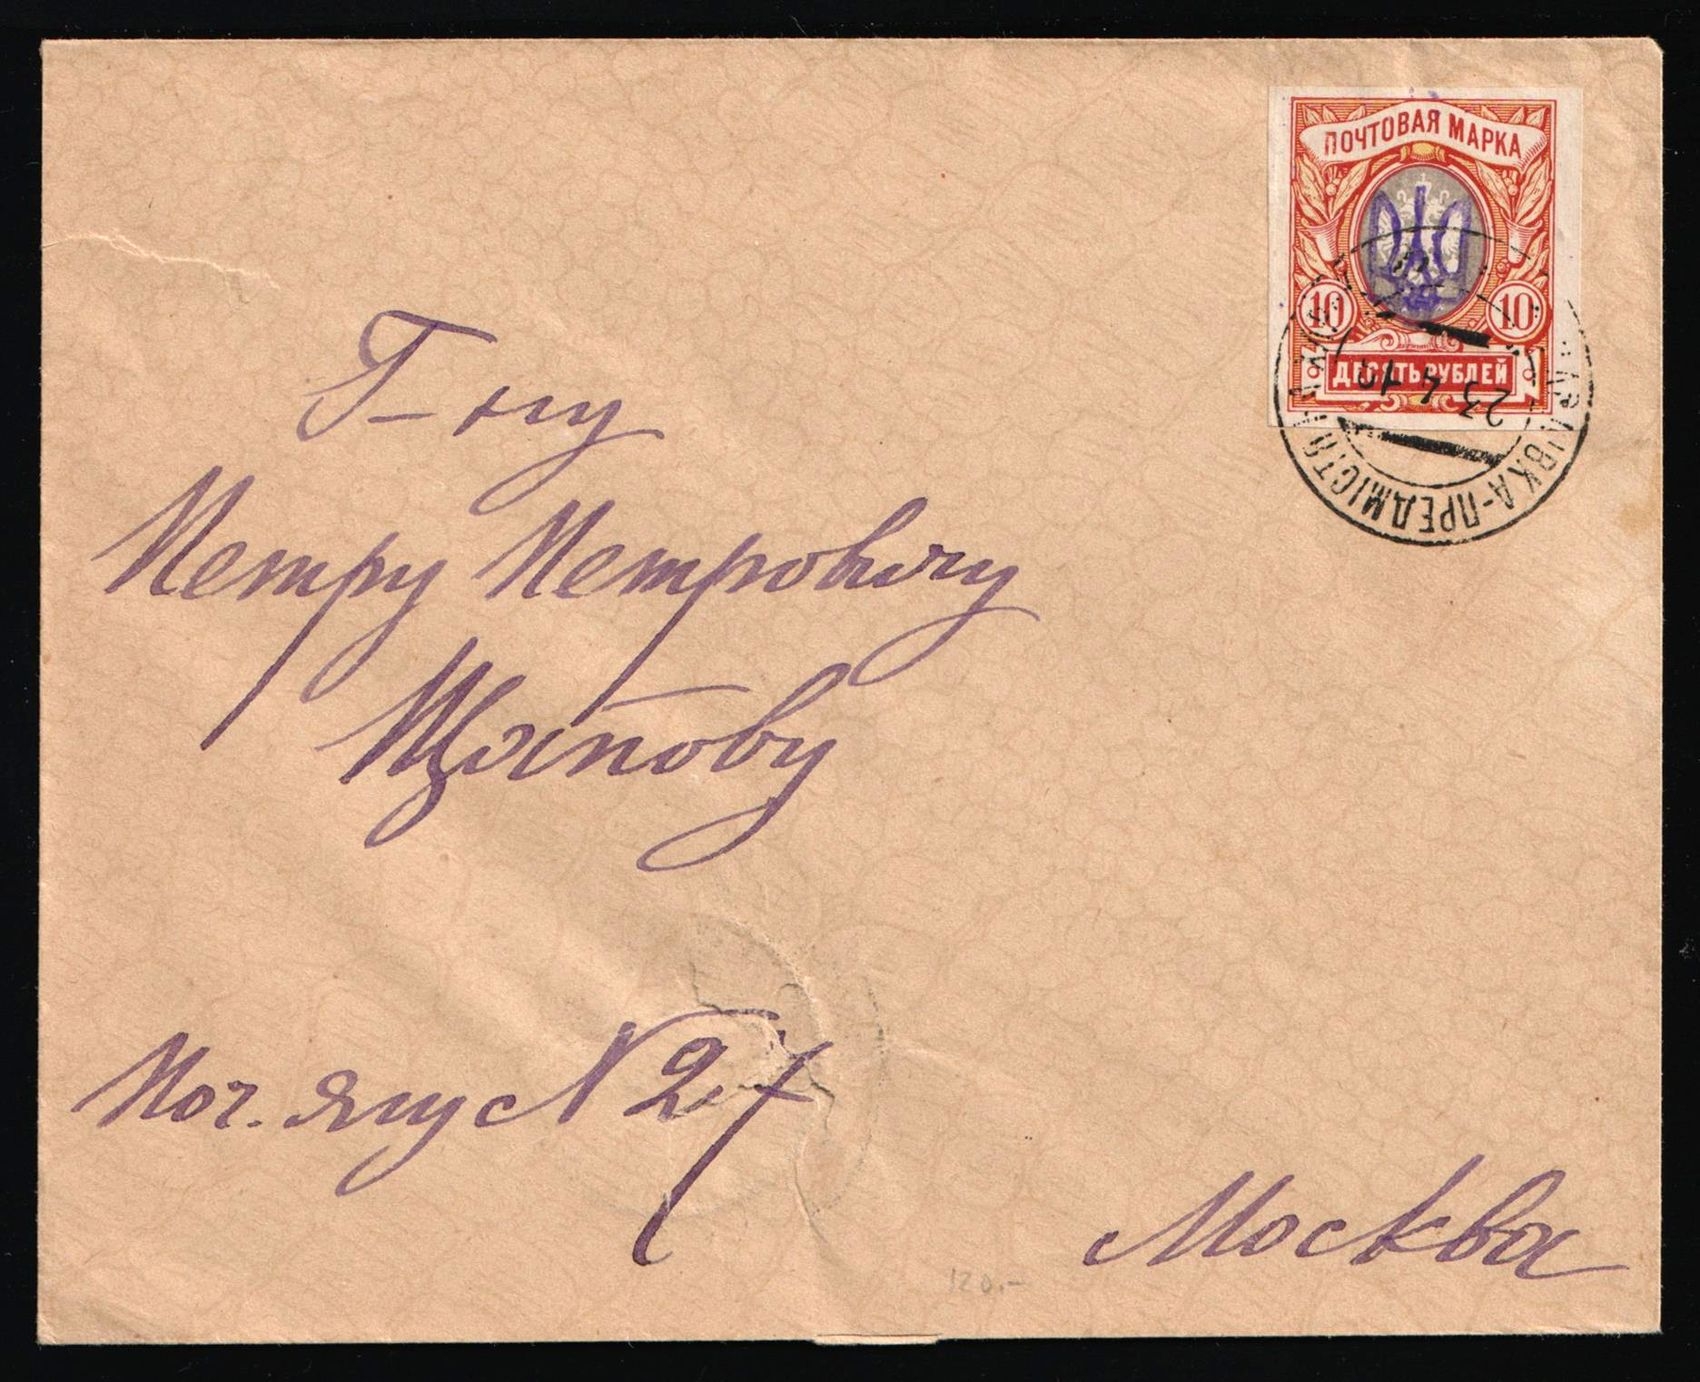 ПОЧТОВАЯ МАРКА
10 10
ДЕСЯТЬ РУБЛЕЙ
23 4 19
ВКА-ПРЕДМІСТЯ
Г-ну
Петру Петровичу
Щапову
Поч. ящ с N 27
Москва
120.-